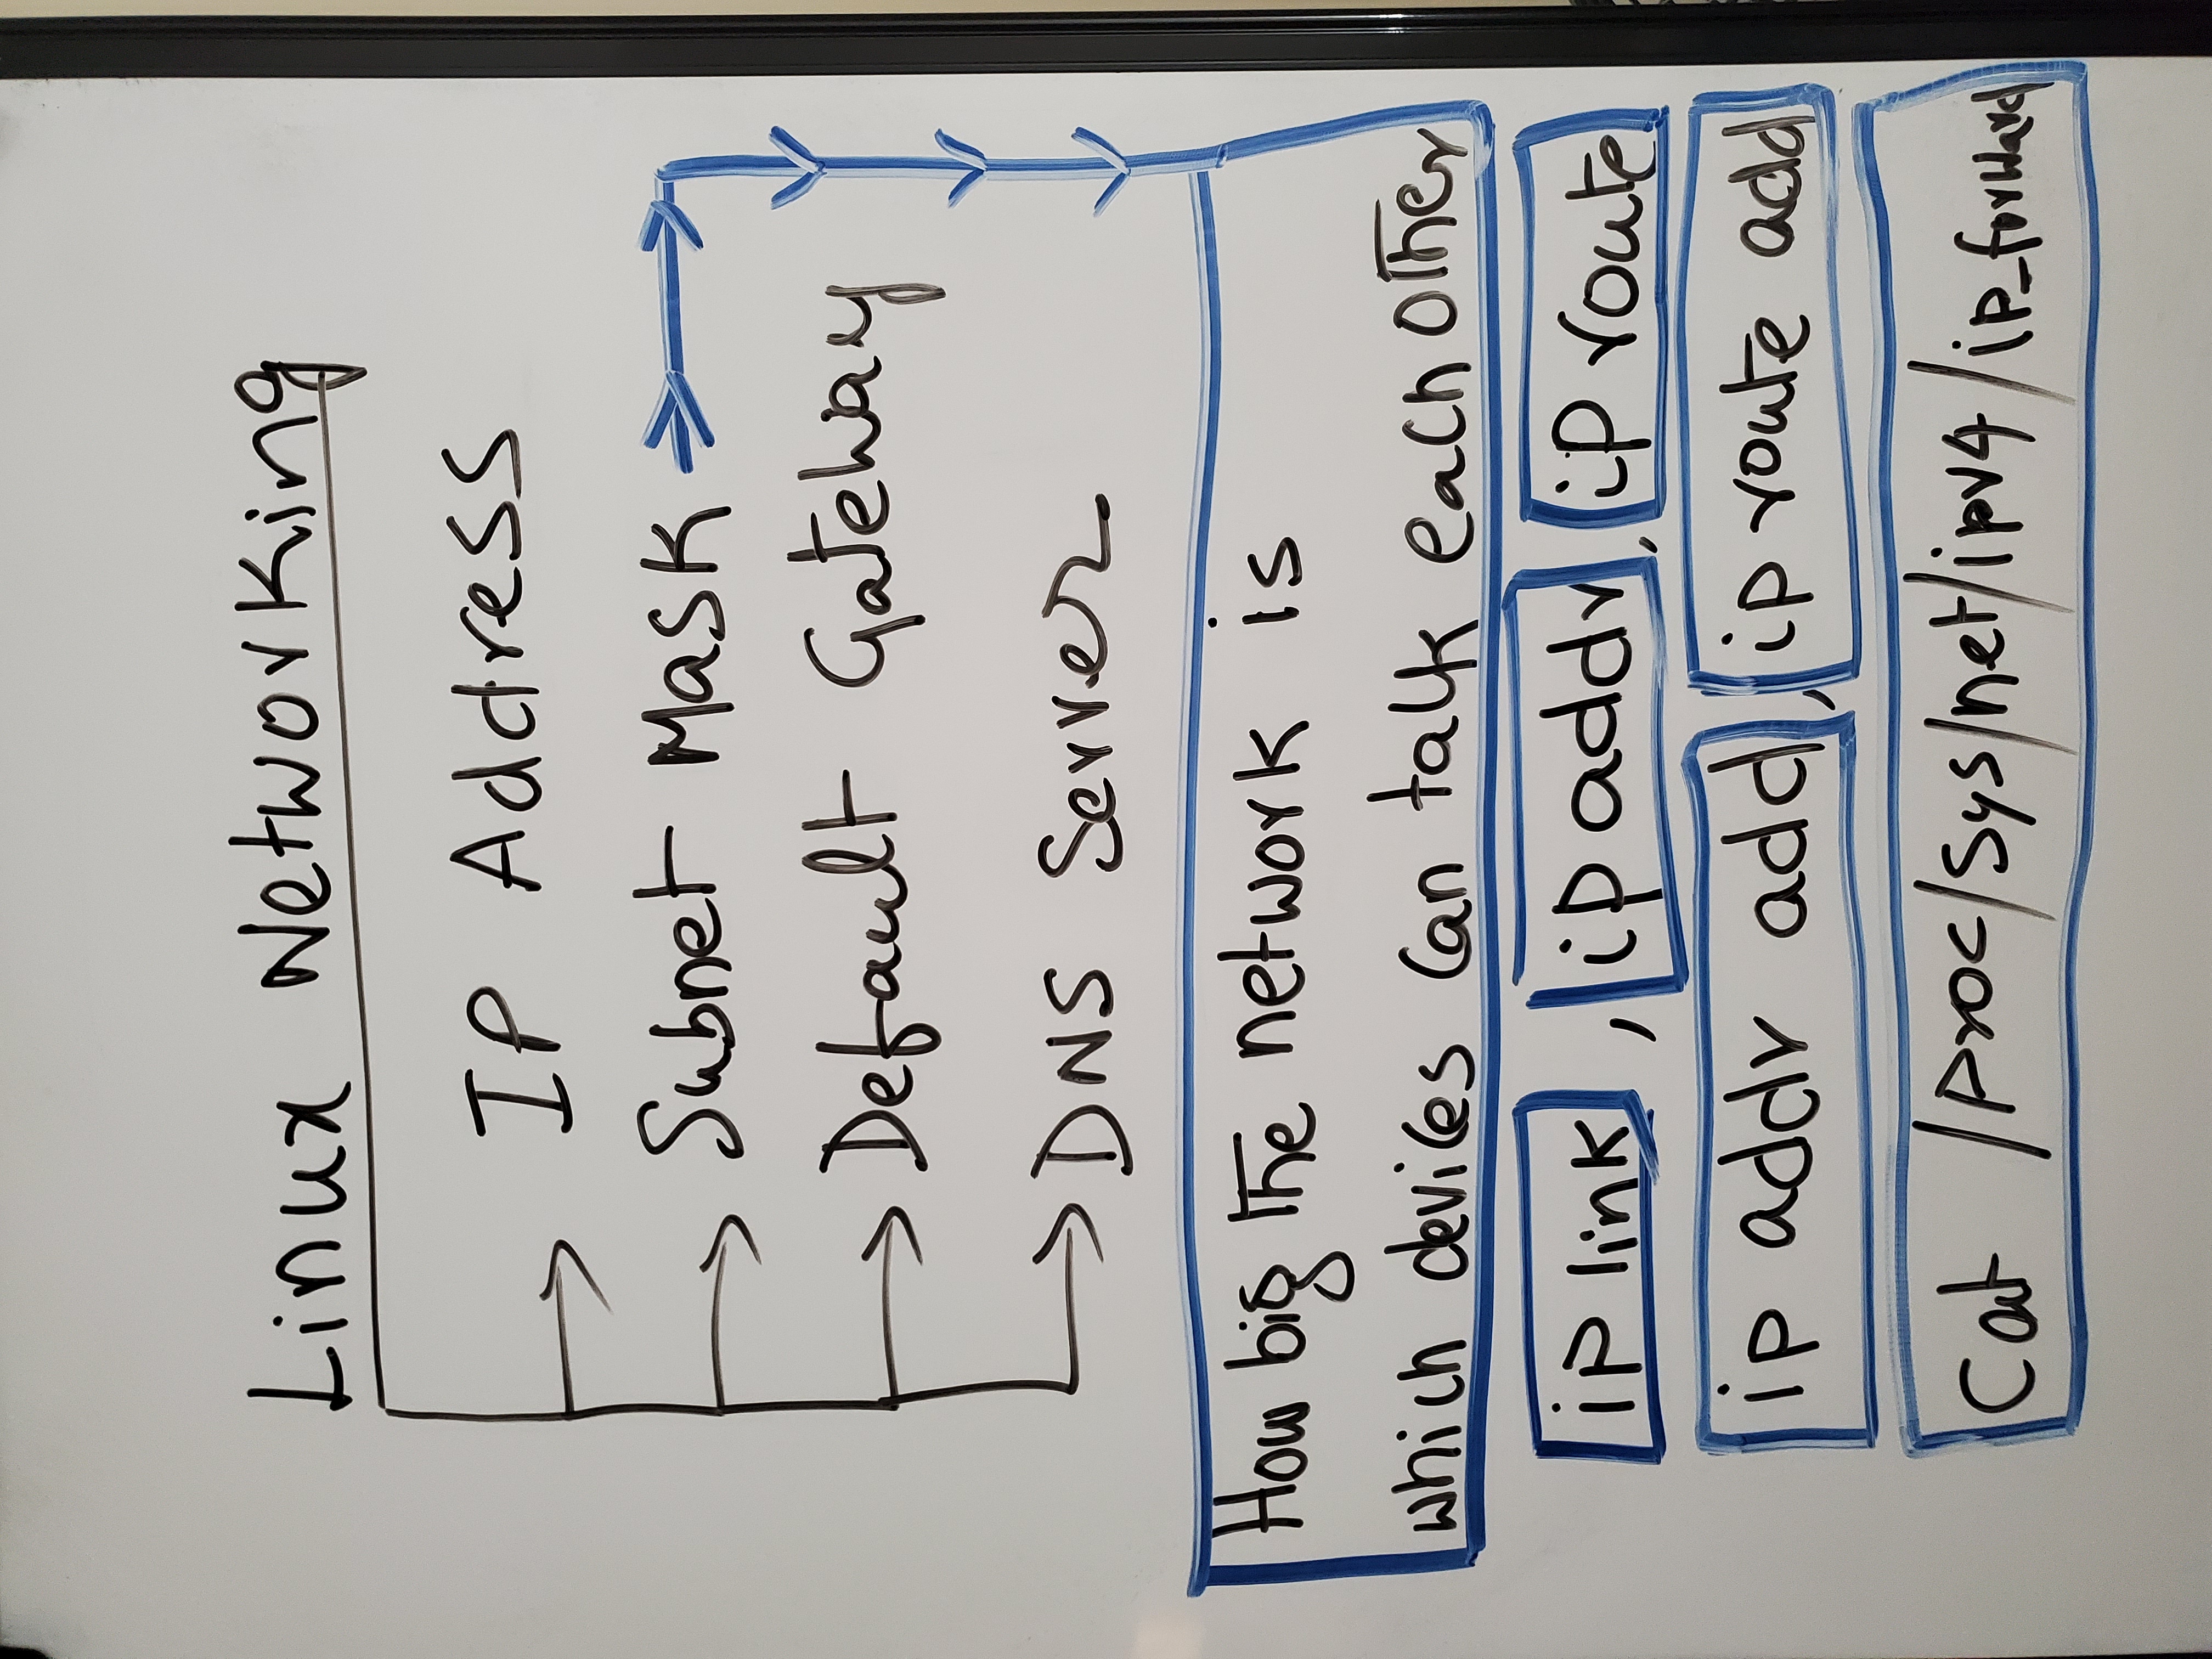 Linux Networking
IP Address
Subnet Mask
Default Gateway
DNS Server
How big the network is
which devices can talk each other
ip link , ip addr , ip route
ip addr add , ip route add
Cat /proc/sys/net/ipv4/ip_forward